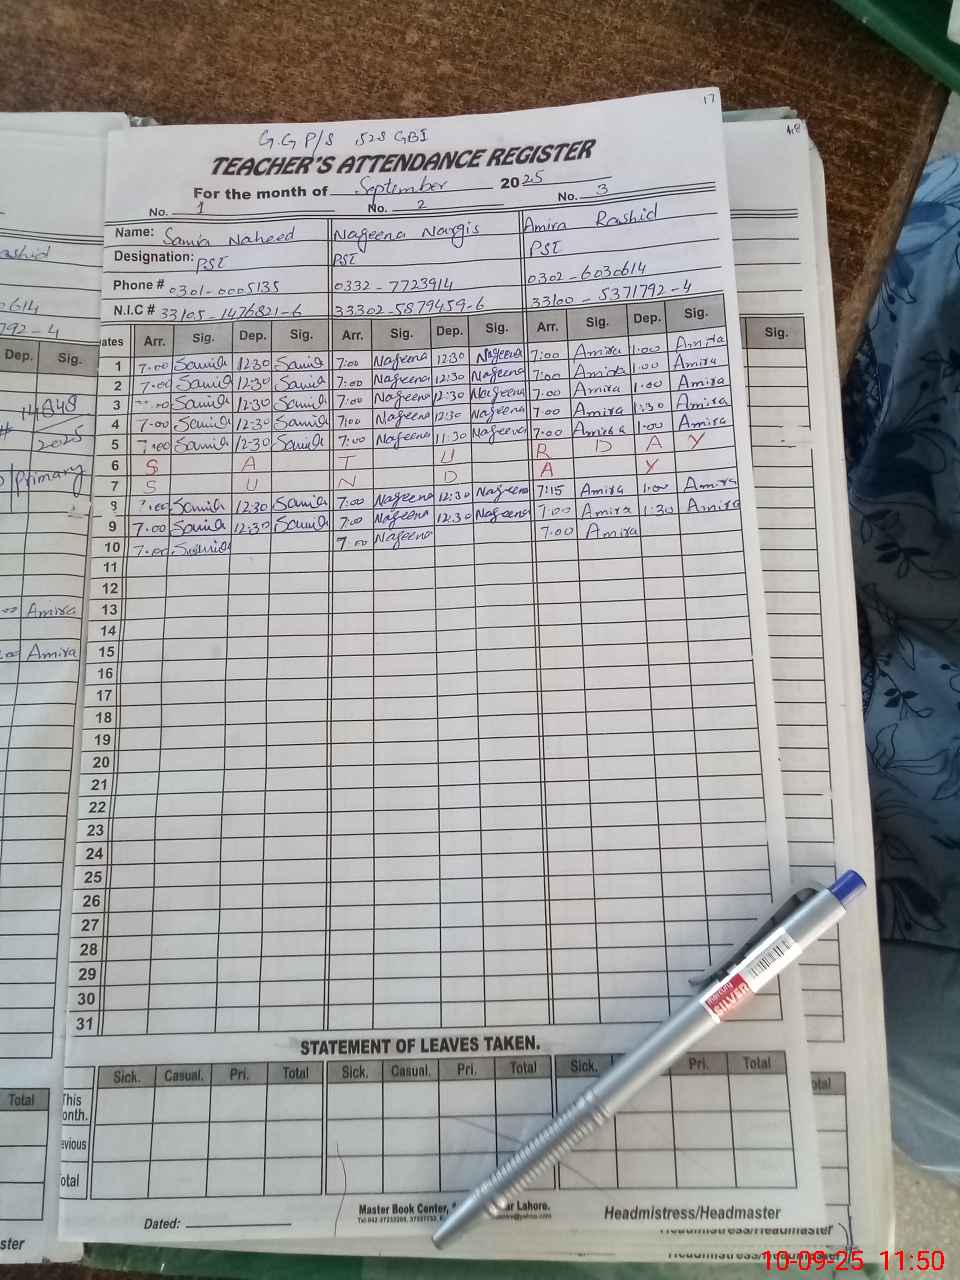 17
G.G P/S 525 GBI
TEACHER'S ATTENDANCE REGISTER
For the month of September 2025
No. 1 No. 2 No. 3
Name: Samia Naheed Nageena Nargis Amira Rashid
Designation: PST PST PST
Phone # 0301-0005135 0332-7723914 0302-6030614
N.I.C # 33105-1476821-6 33302-5879459-6 33100-5371792-4
ates Arr. Sig. Dep. Sig. Arr. Sig. Dep. Sig. Arr. Sig. Dep. Sig.
1 7:00 Samia 12:30 Samia 7:00 Nageena 12:30 Nageena 7:00 Amira 1:00 Amira
2 7:00 Samia 12:30 Samia 7:00 Nageena 12:30 Nageena 7:00 Amira 1:00 Amira
3 Samia 12:30 Samia 7:00 Nageena 12:30 Nageena 7:00 Amira 1:00 Amira
4 7:00 Samia 12:30 Samia 7:00 Nageena 12:30 Nageena 7:00 Amira 1:30 Amira
5 7:00 Samia 12:30 Samia 7:00 Nageena 11:30 Nageena 7:00 Amira 1:00 Amira
6 S A T U R D A Y
7 S U N D A Y
8 7:00 Samia 12:30 Samia 7:00 Nageena 12:30 Nageena 7:15 Amira 1:00 Amira
9 7:00 Samia 12:30 Samia 7:00 Nageena 12:30 Nageena 7:00 Amira 1:30 Amira
10 7:00 Samia 7:00 Nageena 7:00 Amira
11
12
13
14
15
16
17
18
19
20
21
22
23
24
25
26
27
28
29
30
31
STATEMENT OF LEAVES TAKEN.
Sick. Casual. Pri. Total Sick. Casual. Pri. Total Sick. Pri. Total
This
onth.
evious
otal
Master Book Center, ar Lahore.
Dated: Headmistress/Headmaster
ashid
0614
792-4
Dep. Sig.
14848
2025
Primary
Amira
Amira
Total
ster
Sig.
otal
Headmistress/Headmaster
Headmistress/Headmaster
mercury
SILVER
10-09-25 11:50